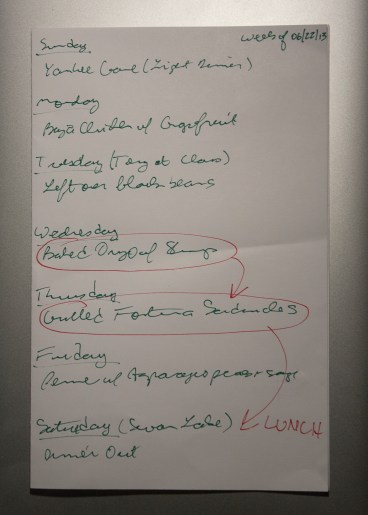 week of 06/22/13
Sunday
Yankee Game (Light Dinner)
Monday
Baja Chicken w/ Grapefruit
Tuesday (Tony at Class)
Leftover black beans
Wednesday
Baked Orzo w/ Shrimp
Thursday
Grilled Fontina Sandwiches
Friday
Penne w/ Asparagus
Saturday (Swan Lake)
LUNCH
Dinner Out